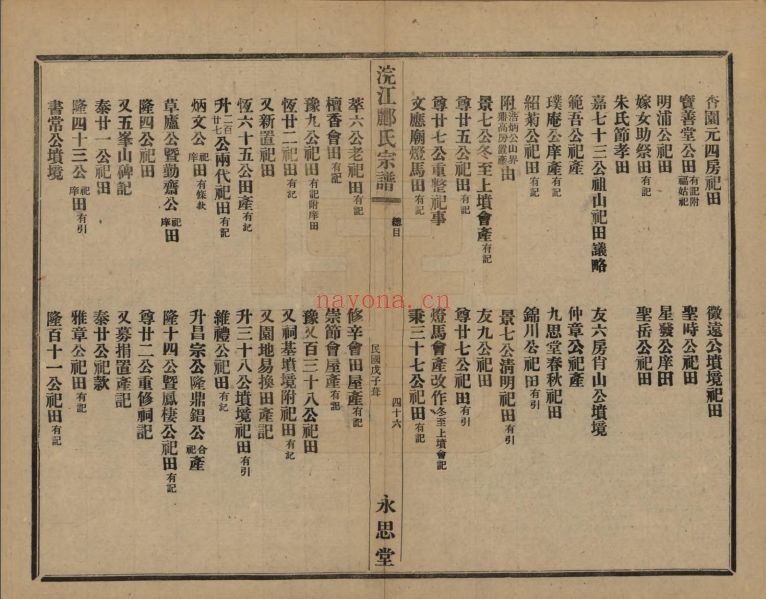 杏園元四房祀田
寶善堂公田有記附福姑祀
明浦公祀田
嫁女助祭田有記
朱氏節孝田
嘉七十三公祖山祀田議略
範吾公祀產
璞庵公庠產有記
紹菊公祀田有記
附浩炳公山界鼎高房置產由
景七公冬至上墳會產有記
尊廿五公祀田有記
尊廿七公重整祀事
文應廟燈馬田有記
徽遠公墳境祀田
聖時公祀田
星發公庠田
聖岳公祀田
友六房肖山公墳境
仲章公祀產
九思堂春秋祀田
錦川公祀田有引
景七公淸明祀田有引
友九公祀田
尊廿七公祀田有引
燈馬會產改作冬至上墳會記
秉三十七公祀田有記
浣江酈氏宗譜
總目
民國戊子葺
四十六
永思堂
萃六公老祀田有記
檀香會田有記
豫九公祀田有記附庠田
恆廿二祀田有記
又新置祀田
恆六十五公田產有記
升二百廿七公兩代祀田有記
炳文公祀庠田有條款
草廬公暨勤齋公祀庠田
隆四公祀田
又五峯山碑記
泰廿一公祀田
隆四十三公祀庠田有引
書常公墳境
修辛會田屋產有記
崇節會屋產有記
豫乆百三十八公祀田
又祠基墳境附祀田有記
又園地易換田產記
升三十八公墳境祀田有引
維禮公祀田有記
升昌宗公隆鼎錩公合祀產
隆十四公暨鳳棲公祀田有記
尊廿二公重修祠記
又募捐置產記
泰廿公祀款
雅章公祀田有記
隆百十一公祀田有記
nayona.cn